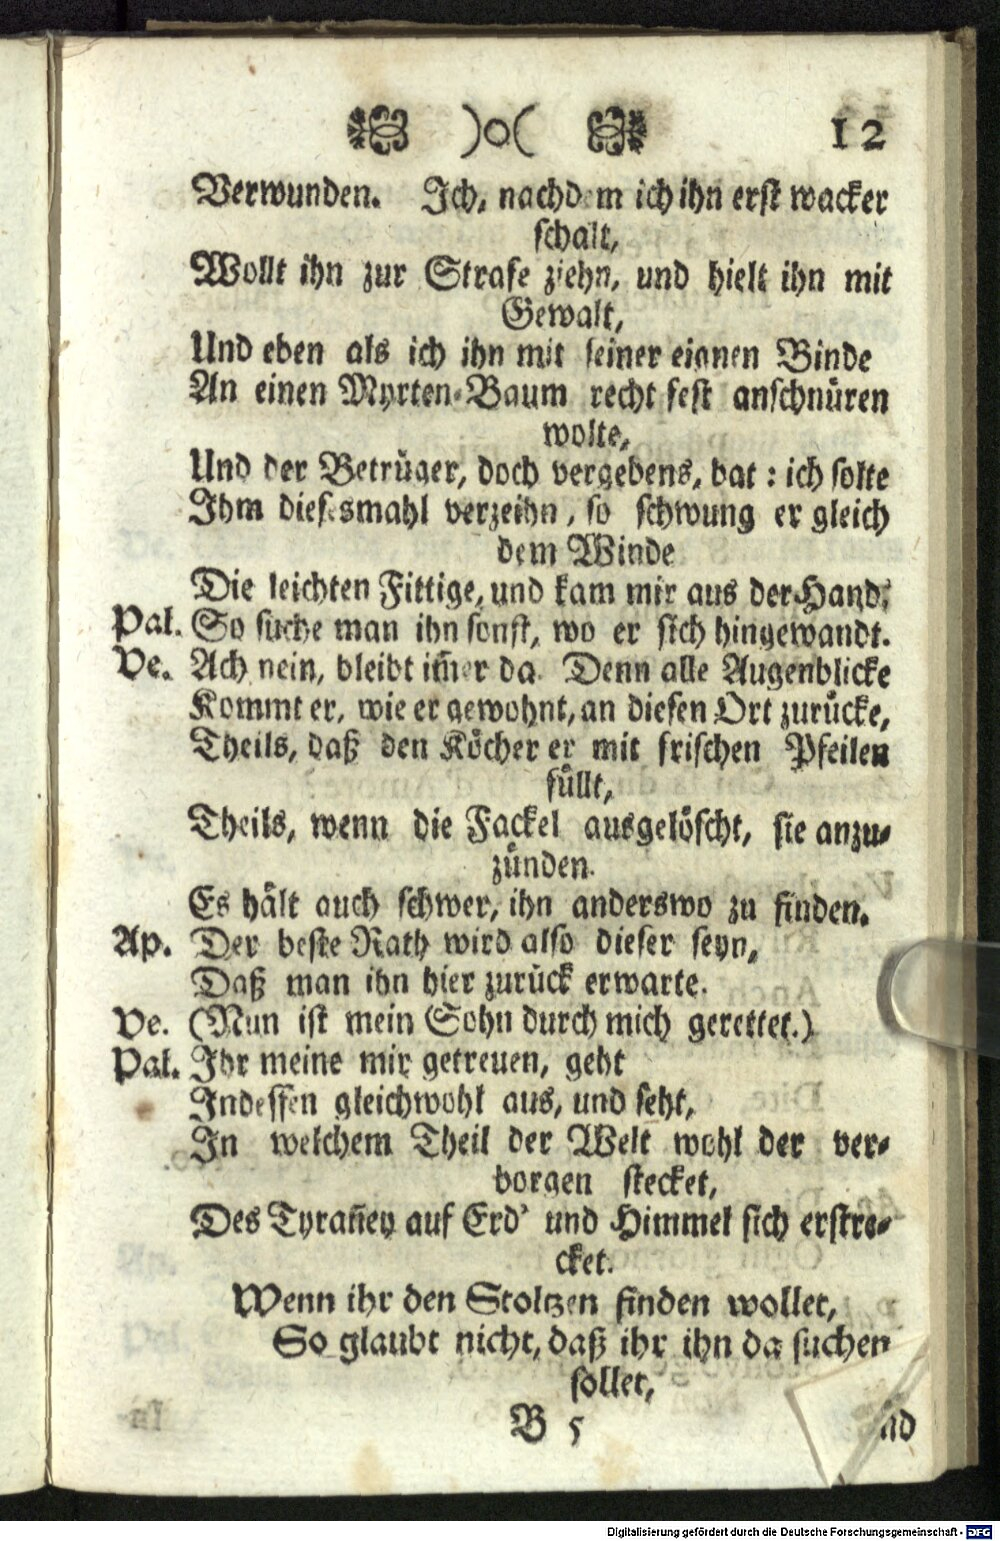 )o( 12
Verwunden. Ich, nachdem ich ihn erst wacker
schalt,
Wollt ihn zur Strafe ziehn, und hielt ihn mit
Gewalt,
Und eben als ich ihn mit seiner eignen Binde
An einen Myrten-Baum recht fest anschnüren
wolte,
Und der Betrüger, doch vergebens, bat: ich solte
Ihm diesesmahl verzeihn, so schwung er gleich
dem Winde
Die leichten Fittige, und kam mir aus der Hand.
Pal. So suche man ihn sonst, wo er sich hingewandt.
Ve. Ach nein, bleibt im̃er da. Denn alle Augenblicke
Kommt er, wie er gewohnt, an diesen Ort zurücke,
Theils, daß den Köcher er mit frischen Pfeilen
füllt,
Theils, wenn die Fackel ausgelöscht, sie anzu-
zünden.
Es hält auch schwer, ihn anderswo zu finden.
Ap. Der beste Rath wird also dieser seyn,
Daß man ihn hier zurück erwarte.
Ve. (Nun ist mein Sohn durch mich gerettet.)
Pal. Ihr meine mir getreuen, geht
Indessen gleichwohl aus, und seht,
In welchem Theil der Welt wohl der ver-
borgen stecket,
Des Tyrañey auf Erd' und Himmel sich erstre-
cket.
Wenn ihr den Stoltzen finden wollet,
So glaubt nicht, daß ihr ihn da suchen
sollet,
B 5 nd
Digitalisierung gefördert durch die Deutsche Forschungsgemeinschaft - DFG